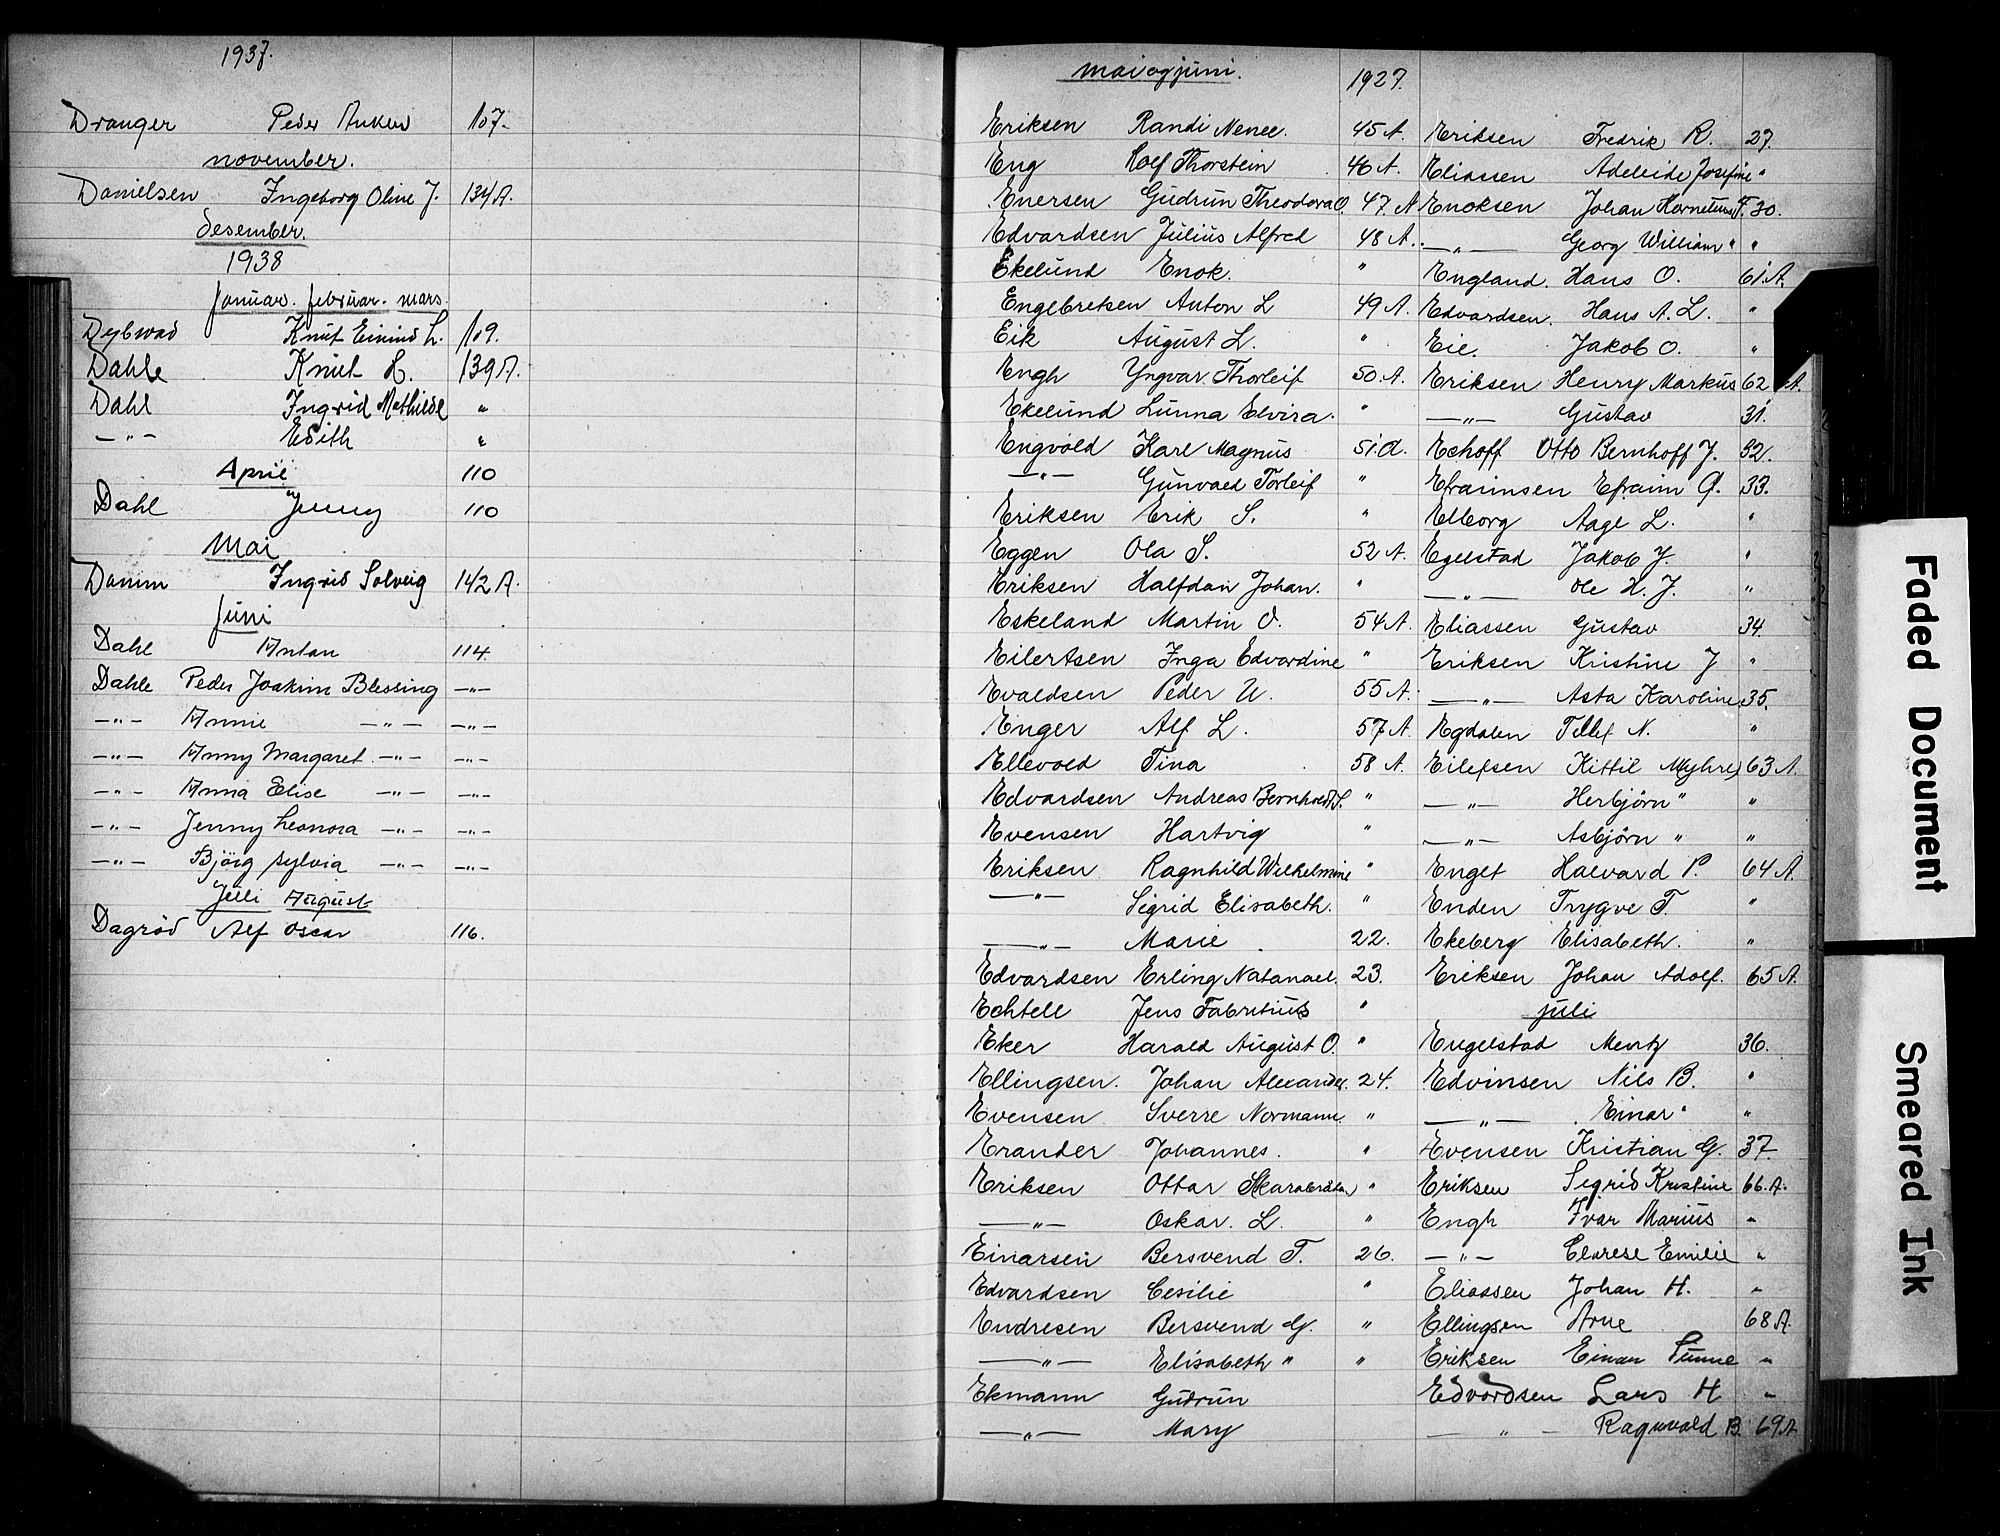 1937.
Dranger Peder Anker 107.
november.
Danielsen Ingeborg Oline J. 134A.
desember.
1938
Januar. februar. mars.
Dybwad Knut Eivind L. 109.
Dahle Knut L. 139A.
Dahl Ingrid Mathilde "
— " — Edith "
April 110
Dahl Jenny 110
Mai
Damm Ingrid Solveig 142A.
Juni
Dahl Anton 114.
Dahle Peder Joakim Blessing —"—
—"— Annie —"— —"—
—"— Anny Margaret —"— —"—
—"— Anna Elise —"— —"—
—"— Jenny Leonora —"— —"—
—"— Bjørg Sylvia —"— —"—
Juli August
Dagrød Alf Oscar 116.
mai og juni. 1927.
Eriksen Randi Nenee. 45A.
Eng Rolf Thorstein 46A.
Enersen Gudrun Theodora O. 47A
Edvardsen Julius Alfred 48A.
Ekelund Enok. "
Engebretsen Anton L 49A.
Eik August L. "
Engh Yngvar Thorleif 50.A.
Ekelund Lunna Elvira. "
Engvold Karl Magnus 51.A.
—"— Gunvald Torleif "
Eriksen Erik S. "
Eggen Ola S. 52A.
Eriksen Halfdan Johan. "
Eskeland Martin O. 54A.
Eilertsen Inga Edvardine "
Evaldsen Peder U. 55A.
Enger Alf L. 57A.
Ellevold Tina 58A.
Edvardsen Andreas Bernhard S. "
Evensen Hartvig "
Eriksen Ragnhild Wilhelmine "
—"— Sigrid Elisabeth. "
—"— Marie 22.
Edvardsen Erling Natanael. 23.
Echtell Jens Fabritius "
Eker Harald August O. "
Ellingsen. Johan Alexander. 24.
Evensen Sverre Normann. "
Erander Johannes. "
Eriksen Ottar Skarabråten) "
—"— Oskar. L. "
Einarsen Bersvend T. 26.
Edvardsen Cesilie "
Endresen Bersvend G. "
—"— Elisabeth " "
Ekmann Gudrun
—"— Mary
Eriksen Fredrik R. 27.
Eliassen Adeleide Josefine "
Enoksen Johan F. 30.
—"— Georg William " "
England Hans O. 61A.
Edvardsen. Hans A. L. "
Eie. Jakob O. "
Eriksen Henry Markus 62 A.
—"— Gustav 31.
Echoff Otto Bernhoff J. 32.
Efraimsen Efraim G. 33.
Elborg Aage L. "
Egelstad Jakob J. "
—"— Ole H. J. "
Eliassen Gustav 34.
Eriksen Kristine J "
—"— Asta Karoline 35.
Egdalen Tellef N. "
Eilefsen Kittil Myhre) 63A.
—"— Herbjørn " "
—"— Asbjørn " "
Enget Halvard P. 64A.
Enden Trygve T. "
Ekeberg Elisabeth. "
Eriksen Johan Adolf. 65A.
juli
Engelstad Mentz 36.
Edvinsen Nils B. "
—"— Einar " "
Evensen Kristian G. 37.
Eriksen Sigrid Kristine 66.A.
Engh Ivar Marius "
—"— Clarese Emilie "
Eliassen Johan H. "
Ellingsen Arne 68A.
Eriksen Einar Sunne "
Edvardsen Lars H "
— " — Ragnvald B. 69A
Faded Document
Smeared Ink